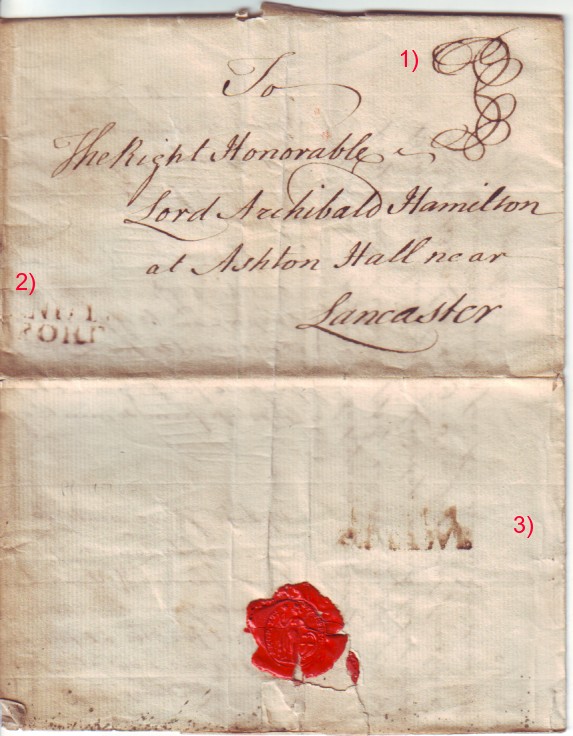 1)
To
The Right Honorable
Lord Archibald Hamilton
at Ashton Hall near
2)
Lancaster
3)